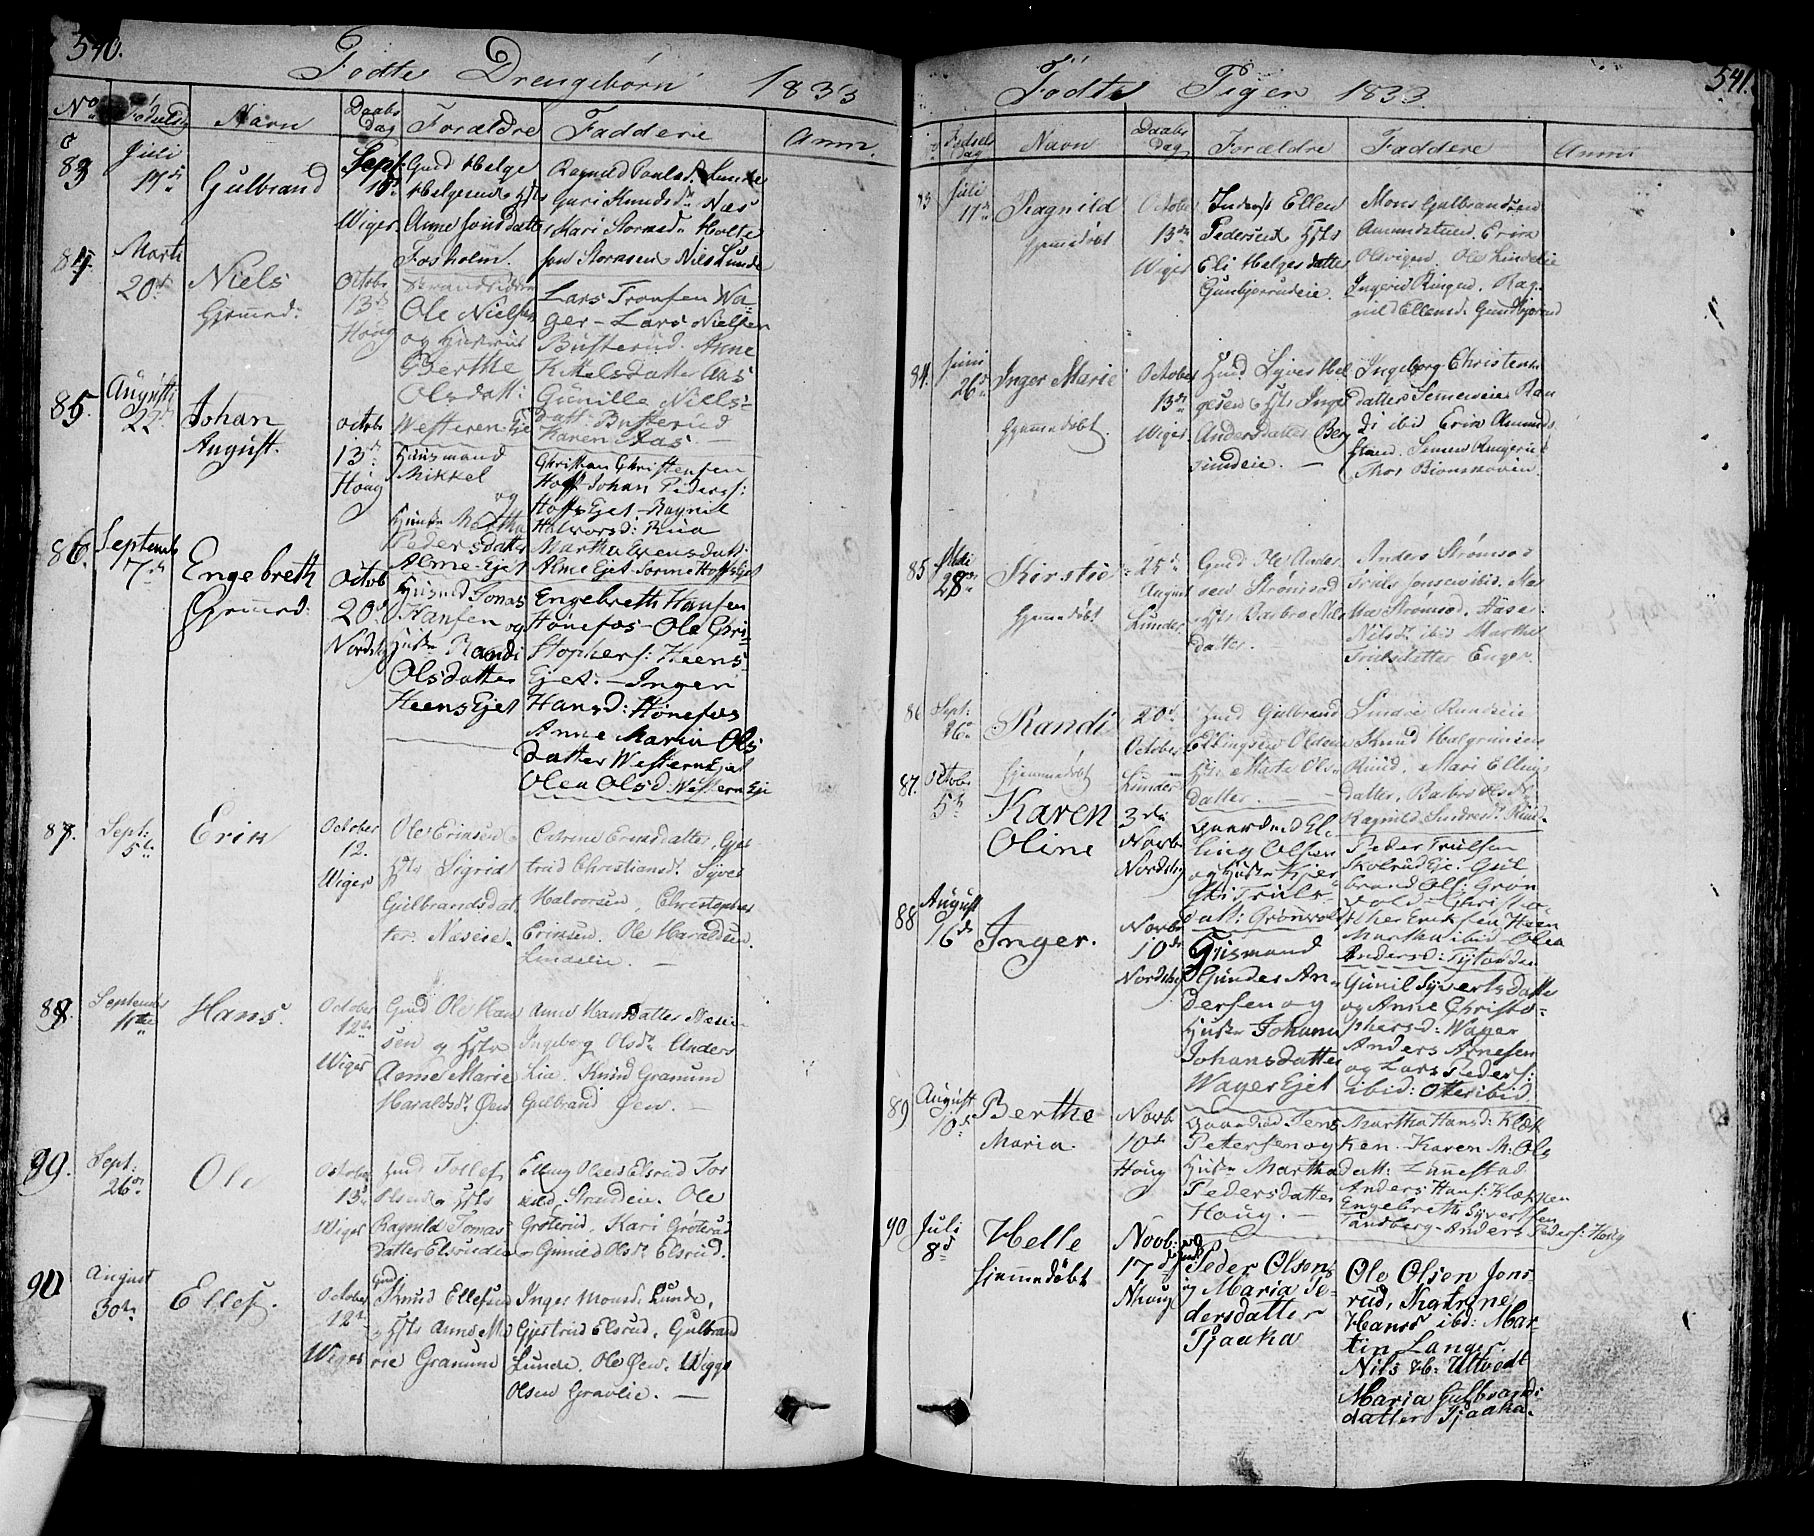 540.
Födte Drengebörn 1833
No Födselsdag Navn Daabs Dag Forældre Faddere Anm.
83 Juli 17de Gulbrand Sept. 15de Wiger
Gmd Helge
Helgesen & Hstr
Anne Jonsdatter
Fosholm.
Ragnild Paulsd. Lunde
Guri Knudsdr Næs
Mari Storasdr Holte
Niels Lunde
84. Marti 20de Niels Hjemmed: Octobr 13de Houg
Strandsidder
Ole Nielsen
og Hustrue
Berthe
Olsdatt:
Westeren Eje
Lars Tronsen Wa-
ger - Lars Nielsen
Busterud. Anne
Kittelsdatter Aas
Gunille Niels-
datt: Busterud
Karen Aas -
85. Augusti 22de Johan August. Octobr 13de Houg
Huusmand
Mikkel
og
Hustr Martha
Pedersdatter
Alme-Ejet
Christian Christensen
Hoff Johan Peders:
Hoffs Ejet - Ragnil
Halvorsd: Rua
Martha Evensdatt:
Alme Ejet - Sorine Hoffs Ejet
86. Septembr 17de Engebreth Hjemmed: Octob 20de Nordrehoug
Husmd Jonas
Hansen og
Hustr Randi
Olsdatter
Heens Ejet
Engebreth Hansen
Hönefos - Ole Chri-
stophers: Heens
Ejet. - Inger
Hansd: Hönefos
Anne Maria Ols
datter Western Ejet
Olea Olsd: Western Eje
87. Sept: 5te Erik October 12. Wiger
Ole Eriksen &
Hstr Sigrid
Gulbrandsdat
ter. Næseie.
Catrine Eriksdatter, Gjer
trud Christiansdr Syver
Halvorsen, Christopher
Eriksen. Ole Haraldsen
Lindelie. -
88. September 11te Hans. October 12te Wiger
Gmd Ole Han
sen og Hstr
Anne Marie
Haraldsdr Øen
Anne Hansdatter Næsie
Ingeborg Olsdr Anders
Lia. Knud Granum
Gulbrand Øen. -
89. Sept: 26de Ole October 13de Wiger
Hmd Tollef
Olsen & Hstr
Ragnild Tomas
datter Elsrudeie
Elling Olsen Elsrud Tor
kild Strandeie. Ole
Gröterud, Kari Gröterud
Gunild Olsdr Elsrud.
90 August 30te Ellef. October 12te Wiger
Gmd
Knud Ellefsen
& Hstr Anne Ma
rie Granum
Inger Monsdr Lunde,
Gjertrud Elsrud, Gulbrand
Lunde. Ole Øen. Wigge
Olsen Gravlie. -
541.
Födte Piger 1833
Födsels Dag Navn Daabs Dag Forældre Faddere Anm:
83 Juli 11te Ragnild Hjemmedöbt October 13de Wiger
Inderst Ellen
Pedersen & Hstr
Eli Helgesdatter
Gunbjørrudeie.
Mons Gulbrandsen
Amundstuen. Erik
Olsvigen. Ole Lindelie
Ingerid Ringerud. Rag-
nild Ellensd. Gundbjørrud
84. Juni 26de Inger Marie Hjemmedöbt. October 13de Wiger
Hmd Syver Hel
gesen & Hstr Inger
Andersdatter Berg
sundeie. -
Ingeborg Christens
datter Semmeneie. Ran
di ibid Erik Amunds
Thor Bjonskoven.
85 28de Kirstie Hjemmedöbt 25de August Lunder
Gmd Ole Ander
sen Strömsod
Hstr Barbro Nils
datter.
Anders Strömsod
Truls Jonsen ibid. Mar
tha Strömsod. Aase
Nilsdr ibid Marthe
Trulsdatter Enger.
86 Sept: 26de Randi Hjemmedöbt 20de October Lunder
Hmd Gulbrand
Ellingsen Oldern
Hstr Mate Ols-
datter. -
Sindre Rundseie
Knud Halgrimsen
Ruud, Mari Ellings
datter, Barbro
Ragnild Sindresdr Ruud.
87. Octobr 5te Karen Oline 3die Novbr Nordrehoug
Gaardmd El-
ling Olsen
og Hustr Kjer-
sti Truls-
datt: Grönvold
Peder Trulsen
Skolrud Eje. Gul
brand Ols: Grön
vold - Christo
pher Eriksen Heen
Martha ibid Olea
Andersd:
88 August 16de Inger. Novbr 10de Nordrehoug
Huusmand
Gunder An-
dersen og
Hustr Johanne
Johansdatter
Wager Ejet
Gunil Syvertsdatter
og Anne Christo-
phersd: Wager
Anders Arnesen
og Lars Peders:
ibid: Otter ibid
89 August 10de Berthe Maria. Novbr 10de Houg
Gaardmd Jens
Petersen og
Hustr Martha
Pedersdatter
Houg. -
Martha Hansd: Klæk
ken. Karen M: Ols
datt: Lunestad
Anders Hans: Klækken
Engebreth Syversen
Tandberg - Anders Peders: Houg
90 Juli 8de Helle Hjemmedöbt Novb: 17de Nhoug
Peder Olsen
og Maria Pe-
dersdatter
Tjaaka
Ole Olsen Jons
rud, Kathrine
Hans ibd: Mar-
tin Langer.
Nils H: Utvedt
Maria Gulbrands
datter Tjaaka.